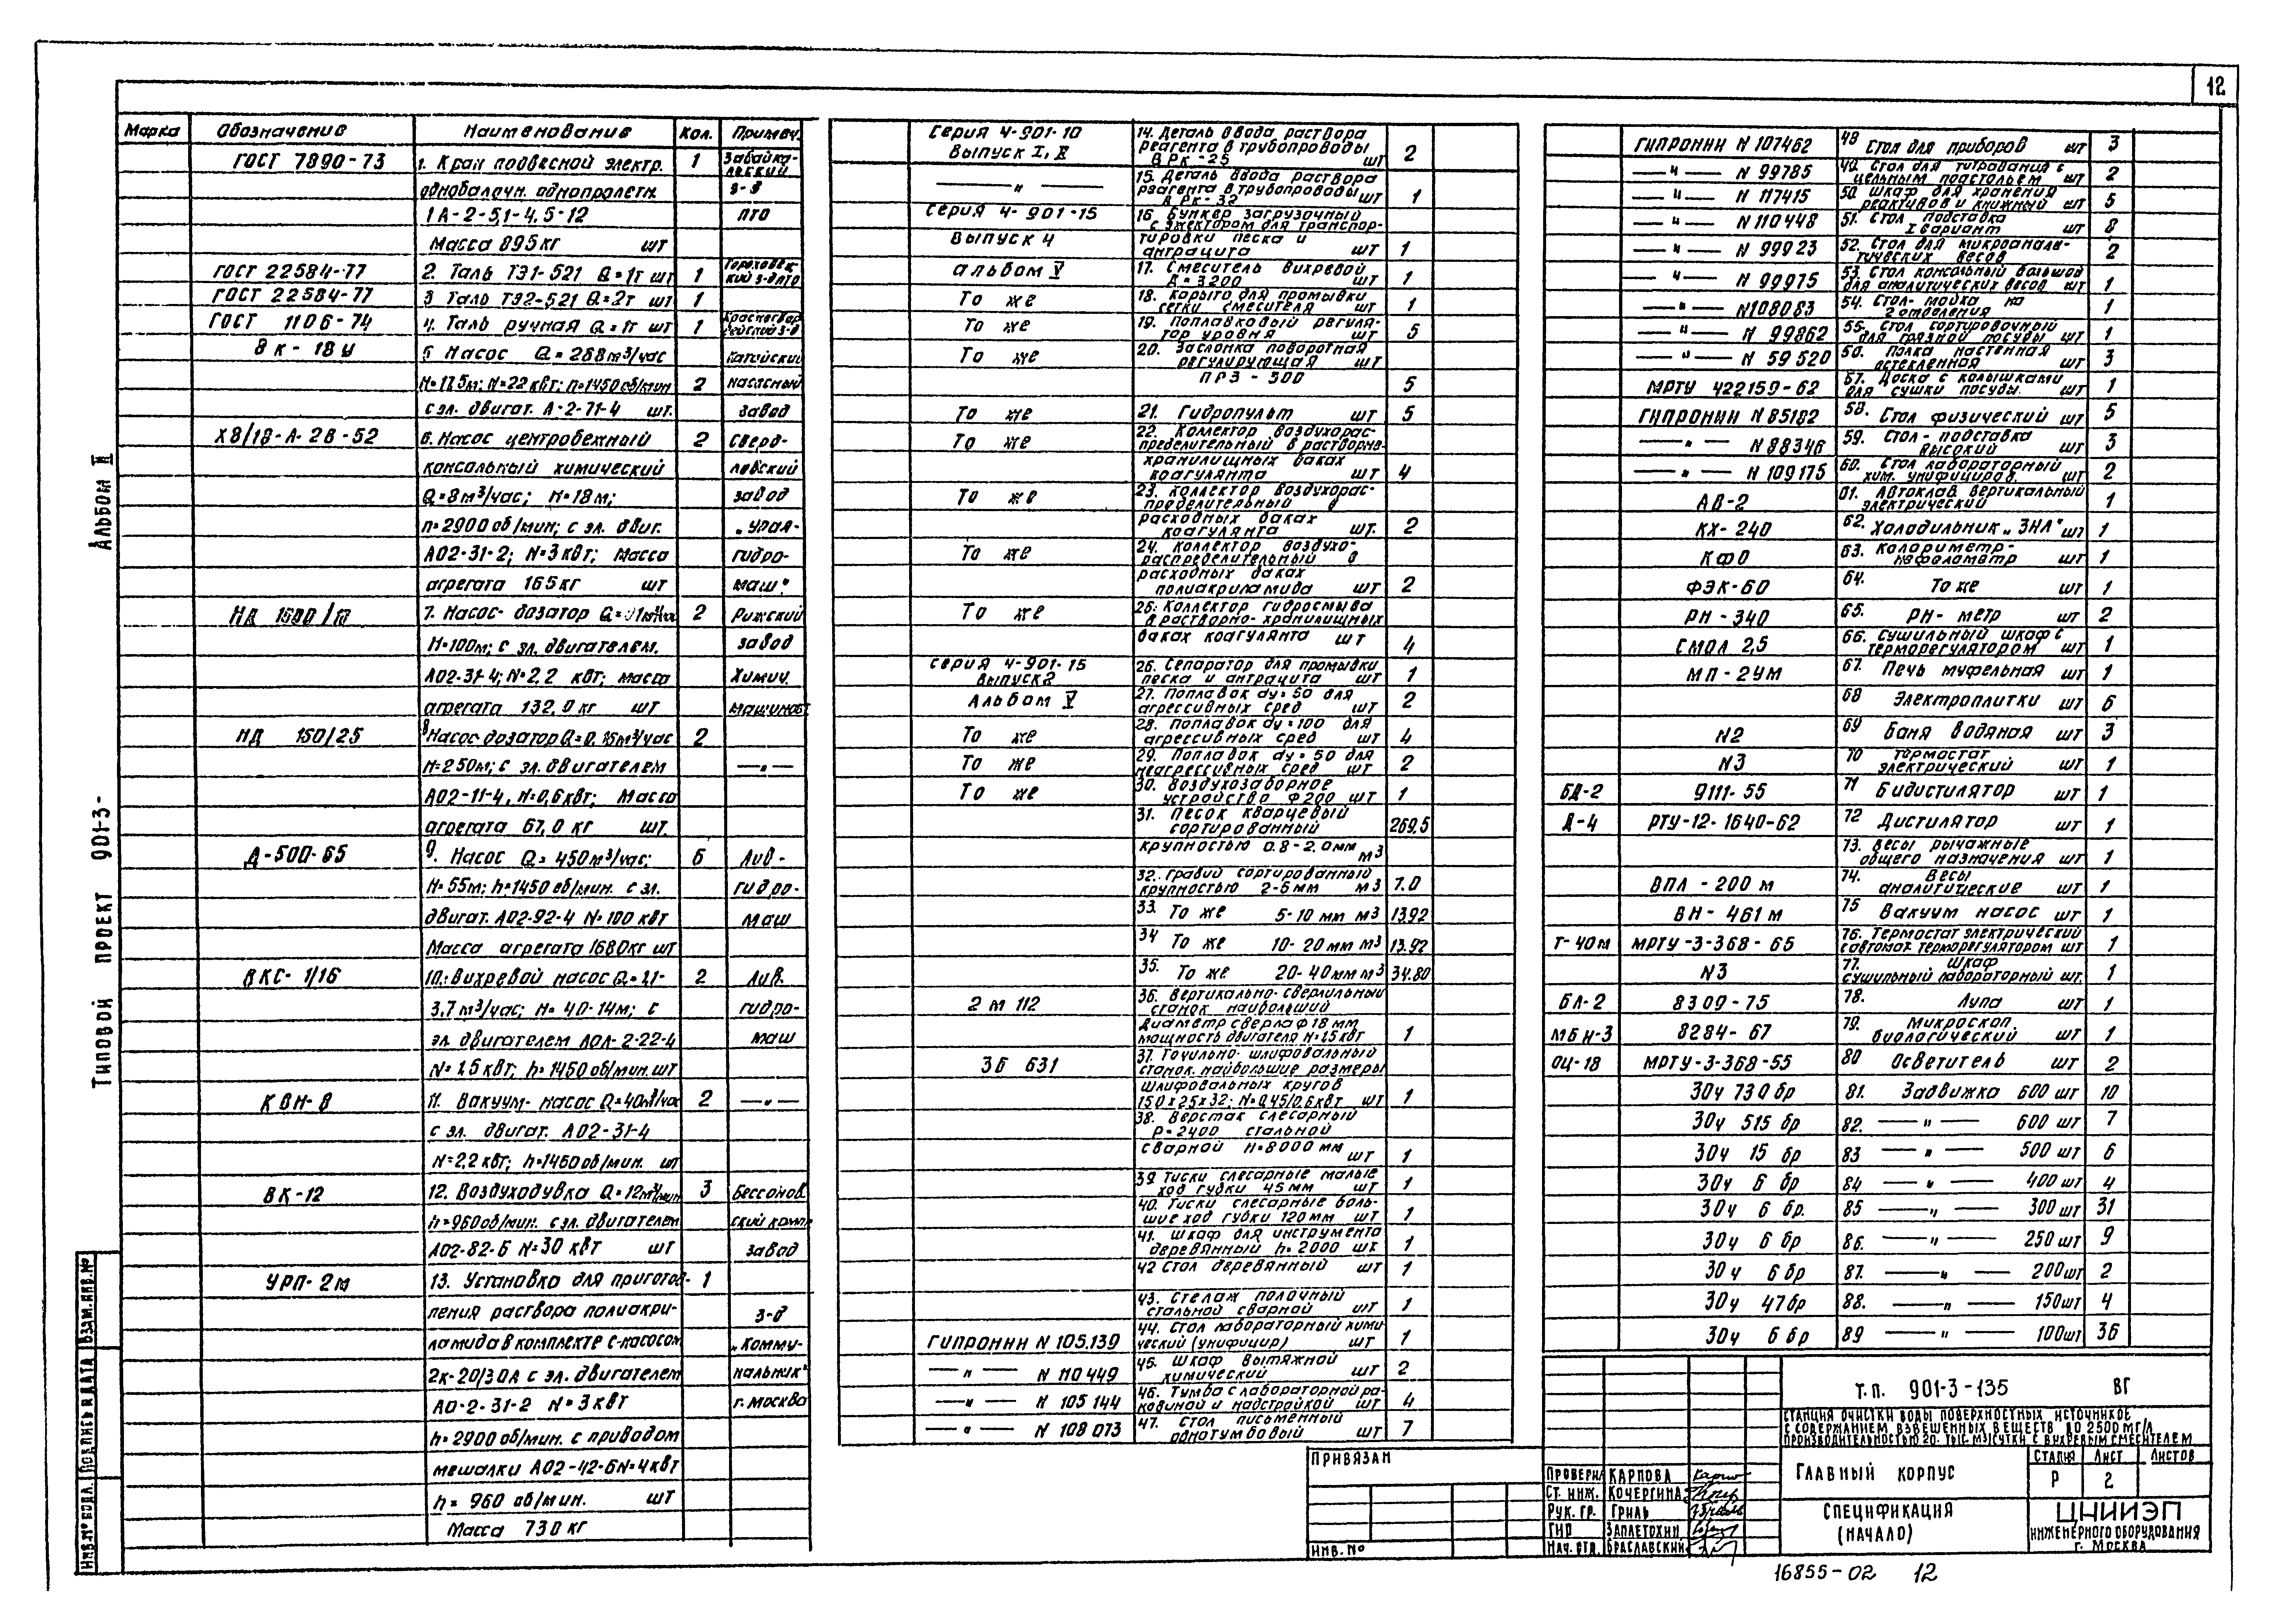 12
Марка Обозначение Наименование Кол. Примеч.
ГОСТ 7890-73 1. Кран подвесной электр. 1 Забайка-
льский
однобалочн. однопролетн. з-д
1А-2-5,1-4,5-12 ПТО
Масса 895кг шт
ГОСТ 22584-77 2. Таль ТЭ1-521 Q=1т шт 1
ГОСТ 22584-77 3 Таль ТЭ2-521 Q=2т шт 1
ГОСТ 1106-74 4. Таль ручная Q=1т шт 1
8К-18У 5 Насос Q=288м³/час Катайский
H=17,5м; N=22 квт; n=1450 об/мин 2 насосный
с эл. двигат. А-2-71-4 шт. завод
Х8/18-А-2В-52 6. Насос центробежный 2 Сверд-
консольный химический ловский
Q=8м³/час; H=18м; завод
n=2900 об/мин; с эл. двиг. „Урал-
А02-31-2; N=3квт; масса гидро-
агрегата 165кг шт маш"
7. Насос-дозатор 2 Рижский
H=100м; с эл. двигателем. завод
А02-31-4; N=2,2 квт; масса Химич.
агрегата 132,0 кг шт машиност
НД 150/25 8 Насос-дозатор Q=0,15м³/час 2
H=250м; с эл. двигателем —"—
А02-11-4, N=0,6квт; Масса
агрегата 67,0 кг шт.
Д-500-65 9. Насос Q=450м³/час; 6 Лив-
H=55м; h=1450 об/мин. с эл. гидро-
двигат. А02-92-4 N=100 квт маш
Масса агрегата 1680кг шт
ВКС-1/16 10. Вихревой насос Q=1,1- 2 Лив.
3,7м³/час; H=40-14м; с гидро-
эл. двигателем АОЛ-2-22-4 маш
N=1,5 квт; h=1450 об/мин. шт
КВН-8 11. Вакуум-насос Q=40м³/час 2 —"—
с эл. двигат. А02-31-4
N=2,2 квт; h=1450 об/мин. шт
ВК-12 12. Воздуходувка Q=12м³/мин 3 Бессонов
h=960 об/мин. с эл. двигателем ский комп
А02-82-6 N=30 квт шт завод
УРП-2м 13. Установка для приготов- 1
ления раствора полиакри- з-д
ламида в комплекте с-насосом „Комму-
2к-20/30А с эл. двигателем нальник"
АО-2-31-2 N=3квт г. Москва
h=2900 об/мин. с приводом
мешалки А02-42-6 N=4квт
h=960 об/мин. шт
Масса 730кг
Серия 4-901-10 14. Деталь ввода раствора
Выпуск I, II реагента в трубопроводы
ВРк-25 шт 2
—"— 15. Деталь ввода раствора
реагента в трубопроводы
ВРк-32 шт 1
Серия 4-901-15 16. Бункер загрузочный
с эжектором для транспор-
Выпуск 4 тировки песка и
антрацита шт 1
альбом V 17. Смеситель вихревой
Д=3200 шт 1
То же 18. Корыто для промывки
сетки смесителя шт 1
То же 19. Поплавковый регуля-
тор уровня шт 5
То же 20. Заслонка поворотная
регулирующая
ПРЗ-500 5
То же 21. Гидропульт шт 5
То же 22. Коллектор воздухорас-
пределительный в растворно-
хранилищных баках
коагулянта шт 4
То же 23. Коллектор воздухорас-
пределительный в
расходных баках
коагулянта шт. 2
То же 24. Коллектор воздухо-
распределительный в
расходных баках
полиакриламида шт 2
То же 25. Коллектор гидросмыва
в растворно-хранилищных
баках коагулянта шт 4
Серия 4-901-15 26. Сепаратор для промывки
Выпуск 2 песка и антрацита шт 1
Альбом V 27. Поплавок dу=50 для
агрессивных сред шт 2
То же 28. Поплавок dу=100 для
агрессивных сред шт 4
То же 29. Поплавок dу=50 для
неагрессивных сред шт 2
То же 30. Воздухозаборное
устройство Ф200 шт 1
31. Песок кварцевый
сортированный 269,5
крупностью 0,8-2,0мм м3
32. Гравий сортированный
крупностью 2-5мм м3 7.0
33. То же 5-10 мм м3 13.92
34 То же 10-20мм м3 13.92
35. То же 20-40мм м3 34.80
2м112 36. Вертикально-сверлильный
станок наибольший
диаметр сверла ф18мм
мощность двигателя N=1,5квт 1
3Б 631 37. Точильно-шлифовальный
станок, наибольшие размеры
шлифовальных кругов
150х25х32; N=0,45/0,6квт шт 1
38. Верстак слесарный
Р=2400 стальной
сварной H=8000мм
шт 1
39 Тиски слесарные малые
ход губки 45мм шт 1
40. Тиски слесарные боль-
шие ход губки 120мм шт 1
41. Шкаф для инструмента
деревянный h=2000 шт 1
42 Стол деревянный шт 1
43. Стелаж полочный
стальной сварной шт 1
ГИПРОНИИ N 105.139 44. Стол лабораторный хими-
ческий (унифицир) шт 1
—"— N 110449 45. Шкаф вытяжной
химический шт 2
—"— N 105 144 46. Тумба с лабораторной ра-
ковиной и надстройкой шт 4
—"— N 108 073 47. Стол письменный
однотумбовый шт 7
ГИПРОНИИ N 107462 48 Стол для приборов шт 3
—"— N 99785 49. Стол для титрования с
цельным подстольем шт 2
—"— N 117415 50. Шкаф для хранения
реактивов и книжный шт 5
—"— N 110448 51. Стол подставка
I вариант шт 8
—"— N 99923 52. Стол для микроанали-
тических весов 2
—"— N 99975 53. Стол консольный большой
для аналитических весов шт 1
—"— N108083 54. Стол-мойка на
2 отделения 1
—"— N 99862 55. Стол сортировочный
для грязной посуды шт 1
—"— N 59520 56. Полка настенная
остекленная 3
МРТУ 422159-62 57. Доска с колышками
для сушки посуды. шт 1
ГИПРОНИИ N 85182 58. Стол физический шт 5
—"— N 88346 59. Стол-подставка
высокий шт 3
—"— N 109175 60. Стол лабораторный
хим. унифициров. шт 2
АВ-2 61. Автоклав вертикальный
электрический 1
КХ-240 62. Холодильник „ЗИЛ" шт 1
КФО 63. Колориметр-
нефелометр шт 1
ФЭК-60 64. То же шт 1
РН-340 65. РН-метр шт 2
СМОЛ 2,5 66. Сушильный шкаф с
терморегулятором шт 1
МП-2УМ 67. Печь муфельная шт 1
68 Электроплитки шт 6
N2 69 Баня водяная шт 3
N3 70 Термостат
электрический шт 1
БД-2 9111-55 71 Бидистилятор шт 1
Д-4 РТУ-12-1640-62 72 Дистилятор шт 1
73. Весы рычажные
общего назначения шт 1
ВПЛ-200м 74. Весы
аналитические шт 1
ВН-461м 75 Вакуум насос шт 1
Т-40м МРТУ-3-368-65 76. Термостат электрический
с автомат. терморегулятором шт 1
N3 77. Шкаф
сушильный лабораторный шт. 1
БЛ-2 8309-75 78. Лупа шт 1
МБИ-3 8284-67 79. Микроскоп
биологический шт 1
ОЦ-18 МРТУ-3-368-55 80 Осветитель шт 2
30ч 730 бр 81. Задвижка 600 шт 10
30ч 515 бр 82. —"— 600 шт 7
30ч 15 бр 83 —"— 500 шт 6
30ч 6 бр 84 —"— 400 шт 4
30ч 6 бр. 85 —"— 300 шт 31
30ч 6 бр 86. —"— 250 шт 9
30ч 6 бр 87. —"— 200шт 2
30ч 47бр 88. —"— 150шт 4
30ч 6 бр 89 —"— 100шт 36
Альбом II
Типовой проект 901-3-
Инв.№ подл. Подпись и дата Взам.инв.№
Привязан
Инв.№
Т.п. 901-3-135 ВГ
Станция очистки воды поверхностных источников
с содержанием взвешенных веществ до 2500мг/л
производительностью 20. тыс. м3/сутки с вихревым смесителем
Главный корпус
Стадия Лист Листов
Р 2
Спецификация
(начало)
ЦНИИЭП
инженерного оборудования
г. Москва
Проверил Карпова
Ст. инж. Кочергина
Рук. гр. Гриль
ГИП Заплетохин
Нач. отд. Браславский
16855-02 12